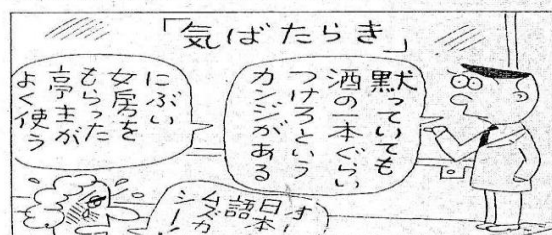 「気ばたらき」
黙っていても
酒の一本ぐらい
つけろという
カンジがある
にぶい
女房を
もらった
亭主が
よく使う
オー
日本
語
ムズカ
シー